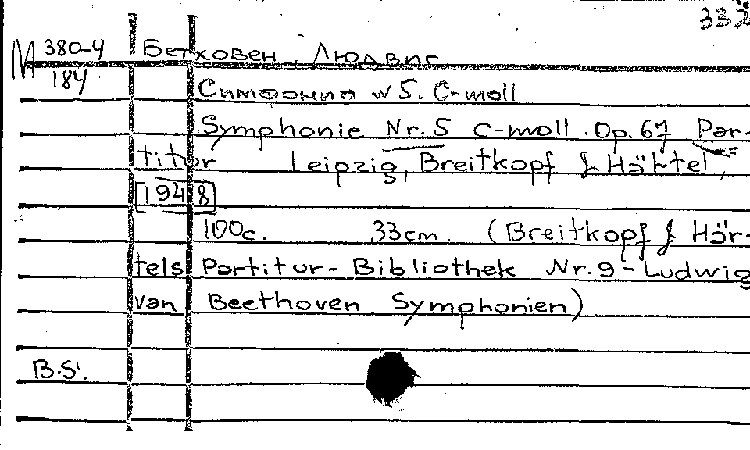 332
М 380-4 Бетховен, Людвиг
184
Симфония №5. C-moll
Symphonie Nr.5 C-moll. Op.67 Par-
titur Leipzig, Breitkopf & Härtel,
[1948]
100с. 33cm. (Breitkopf & Här-
tels Partitur-Bibliothek Nr.9-Ludwig
van Beethoven Symphonien)
B.S.